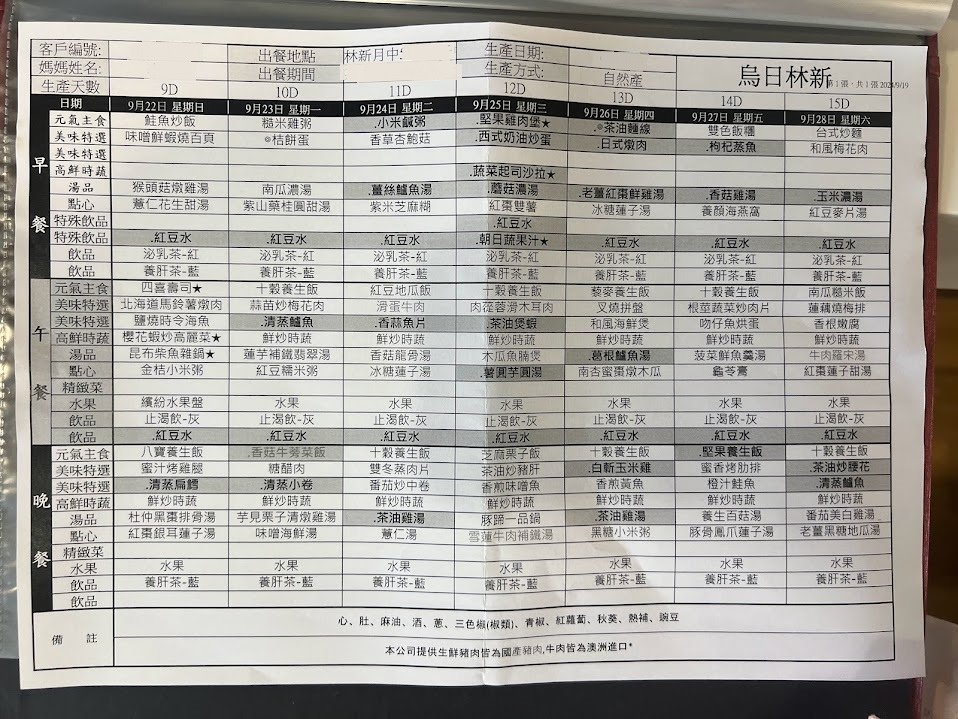 客戶編號: 出餐地點 林新月中 生產日期:
媽媽姓名: 出餐期間 生產方式: 自然產 烏日林新 第1張，共1張 2024/9/19
生產天數 9D 10D 11D 12D 13D 14D 15D
日期 9月22日 星期日 9月23日 星期一 9月24日 星期二 9月25日 星期三 9月26日 星期四 9月27日 星期五 9月28日 星期六
早餐
元氣主食 鮭魚炒飯 糙米雞粥 .小米鹹粥 .堅果雞肉堡★ ※茶油麵線 雙色飯糰 台式炒麵
美味特選 味噌鮮蝦燒百頁 ※桔餅蛋 香草杏鮑菇 .西式奶油炒蛋 .日式燉肉 .枸杞蒸魚 和風梅花肉
美味特選
高鮮時蔬 .蔬菜起司沙拉★
湯品 猴頭菇燉雞湯 南瓜濃湯 .薑絲鱸魚湯 .蘑菇濃湯 .老薑紅棗鮮雞湯 .香菇雞湯 .玉米濃湯
點心 薏仁花生甜湯 紫山藥桂圓甜湯 紫米芝麻糊 紅棗雙薯 冰糖蓮子湯 養顏海燕窩 紅豆麥片湯
特殊飲品 .紅豆水
特殊飲品 .紅豆水 .紅豆水 .紅豆水 .朝日蔬果汁★ .紅豆水 .紅豆水 .紅豆水
飲品 泌乳茶-紅 泌乳茶-紅 泌乳茶-紅 泌乳茶-紅 泌乳茶-紅 泌乳茶-紅 泌乳茶-紅
飲品 養肝茶-藍 養肝茶-藍 養肝茶-藍 養肝茶-藍 養肝茶-藍 養肝茶-藍 養肝茶-藍
午餐
元氣主食 四喜壽司★ 十穀養生飯 紅豆地瓜飯 十穀養生飯 藜麥養生飯 十穀養生飯 南瓜糙米飯
美味特選 北海道馬鈴薯燉肉 蒜苗炒梅花肉 滑蛋牛肉 肉孮蓉滑木耳肉 叉燒拼盤 根莖蔬菜炒肉片 蓮藕燒梅排
美味特選 鹽燒時令海魚 .清蒸鱸魚 .香蒜魚片 .茶油煲蝦 和風海鮮煲 吻仔魚烘蛋 香根嫩腐
高鮮時蔬 櫻花蝦炒高麗菜★ 鮮炒時蔬 鮮炒時蔬 鮮炒時蔬 鮮炒時蔬 鮮炒時蔬 鮮炒時蔬
湯品 昆布柴魚雜鍋★ 蓮芋補鐵翡翠湯 香菇龍骨湯 木瓜魚腩煲 .葛根鱸魚湯 菠菜鮮魚羹湯 牛肉羅宋湯
點心 金桔小米粥 紅豆糯米粥 冰糖蓮子湯 .薯圓芋圓湯 南杏蜜棗燉木瓜 龜苓膏 紅棗蓮子甜湯
精緻菜
水果 繽紛水果盤 水果 水果 水果 水果 水果 水果
飲品 止渴飲-灰 止渴飲-灰 止渴飲-灰 止渴飲-灰 止渴飲-灰 止渴飲-灰 止渴飲-灰
飲品 .紅豆水 .紅豆水 .紅豆水 .紅豆水 .紅豆水 .紅豆水 .紅豆水
晚餐
元氣主食 八寶養生飯 .香菇牛蒡菜飯 十穀養生飯 芝麻栗子飯 十穀養生飯 .堅果養生飯 十穀養生飯
美味特選 蜜汁烤雞腿 糖醋肉 雙冬蒸肉片 茶油炒豬肝 .白斬玉米雞 蜜香烤肋排 .茶油炒腰花
美味特選 .清蒸扁鱈 .清蒸小卷 番茄炒中卷 香煎味噌魚 香煎黃魚 橙汁鮭魚 .清蒸鱸魚
高鮮時蔬 鮮炒時蔬 鮮炒時蔬 鮮炒時蔬 鮮炒時蔬 鮮炒時蔬 鮮炒時蔬 鮮炒時蔬
湯品 杜仲黑棗排骨湯 芋見栗子清燉雞湯 .茶油雞湯 豚蹄一品鍋 .茶油雞湯 養生百菇湯 番茄美白雞湯
點心 紅棗銀耳蓮子湯 味噌海鮮湯 薏仁湯 雪蓮牛肉補鐵湯 黑糖小米粥 豚骨鳳爪蓮子湯 老薑黑糖地瓜湯
精緻菜
水果 水果 水果 水果 水果 水果 水果 水果
飲品 養肝茶-藍 養肝茶-藍 養肝茶-藍 養肝茶-藍 養肝茶-藍 養肝茶-藍 養肝茶-藍
飲品
備註 心、肚、麻油、酒、蔥、三色椒(椒類)、青椒、紅蘿蔔、秋葵、熱補、豌豆
本公司提供生鮮豬肉皆為國產豬肉,牛肉皆為澳洲進口*